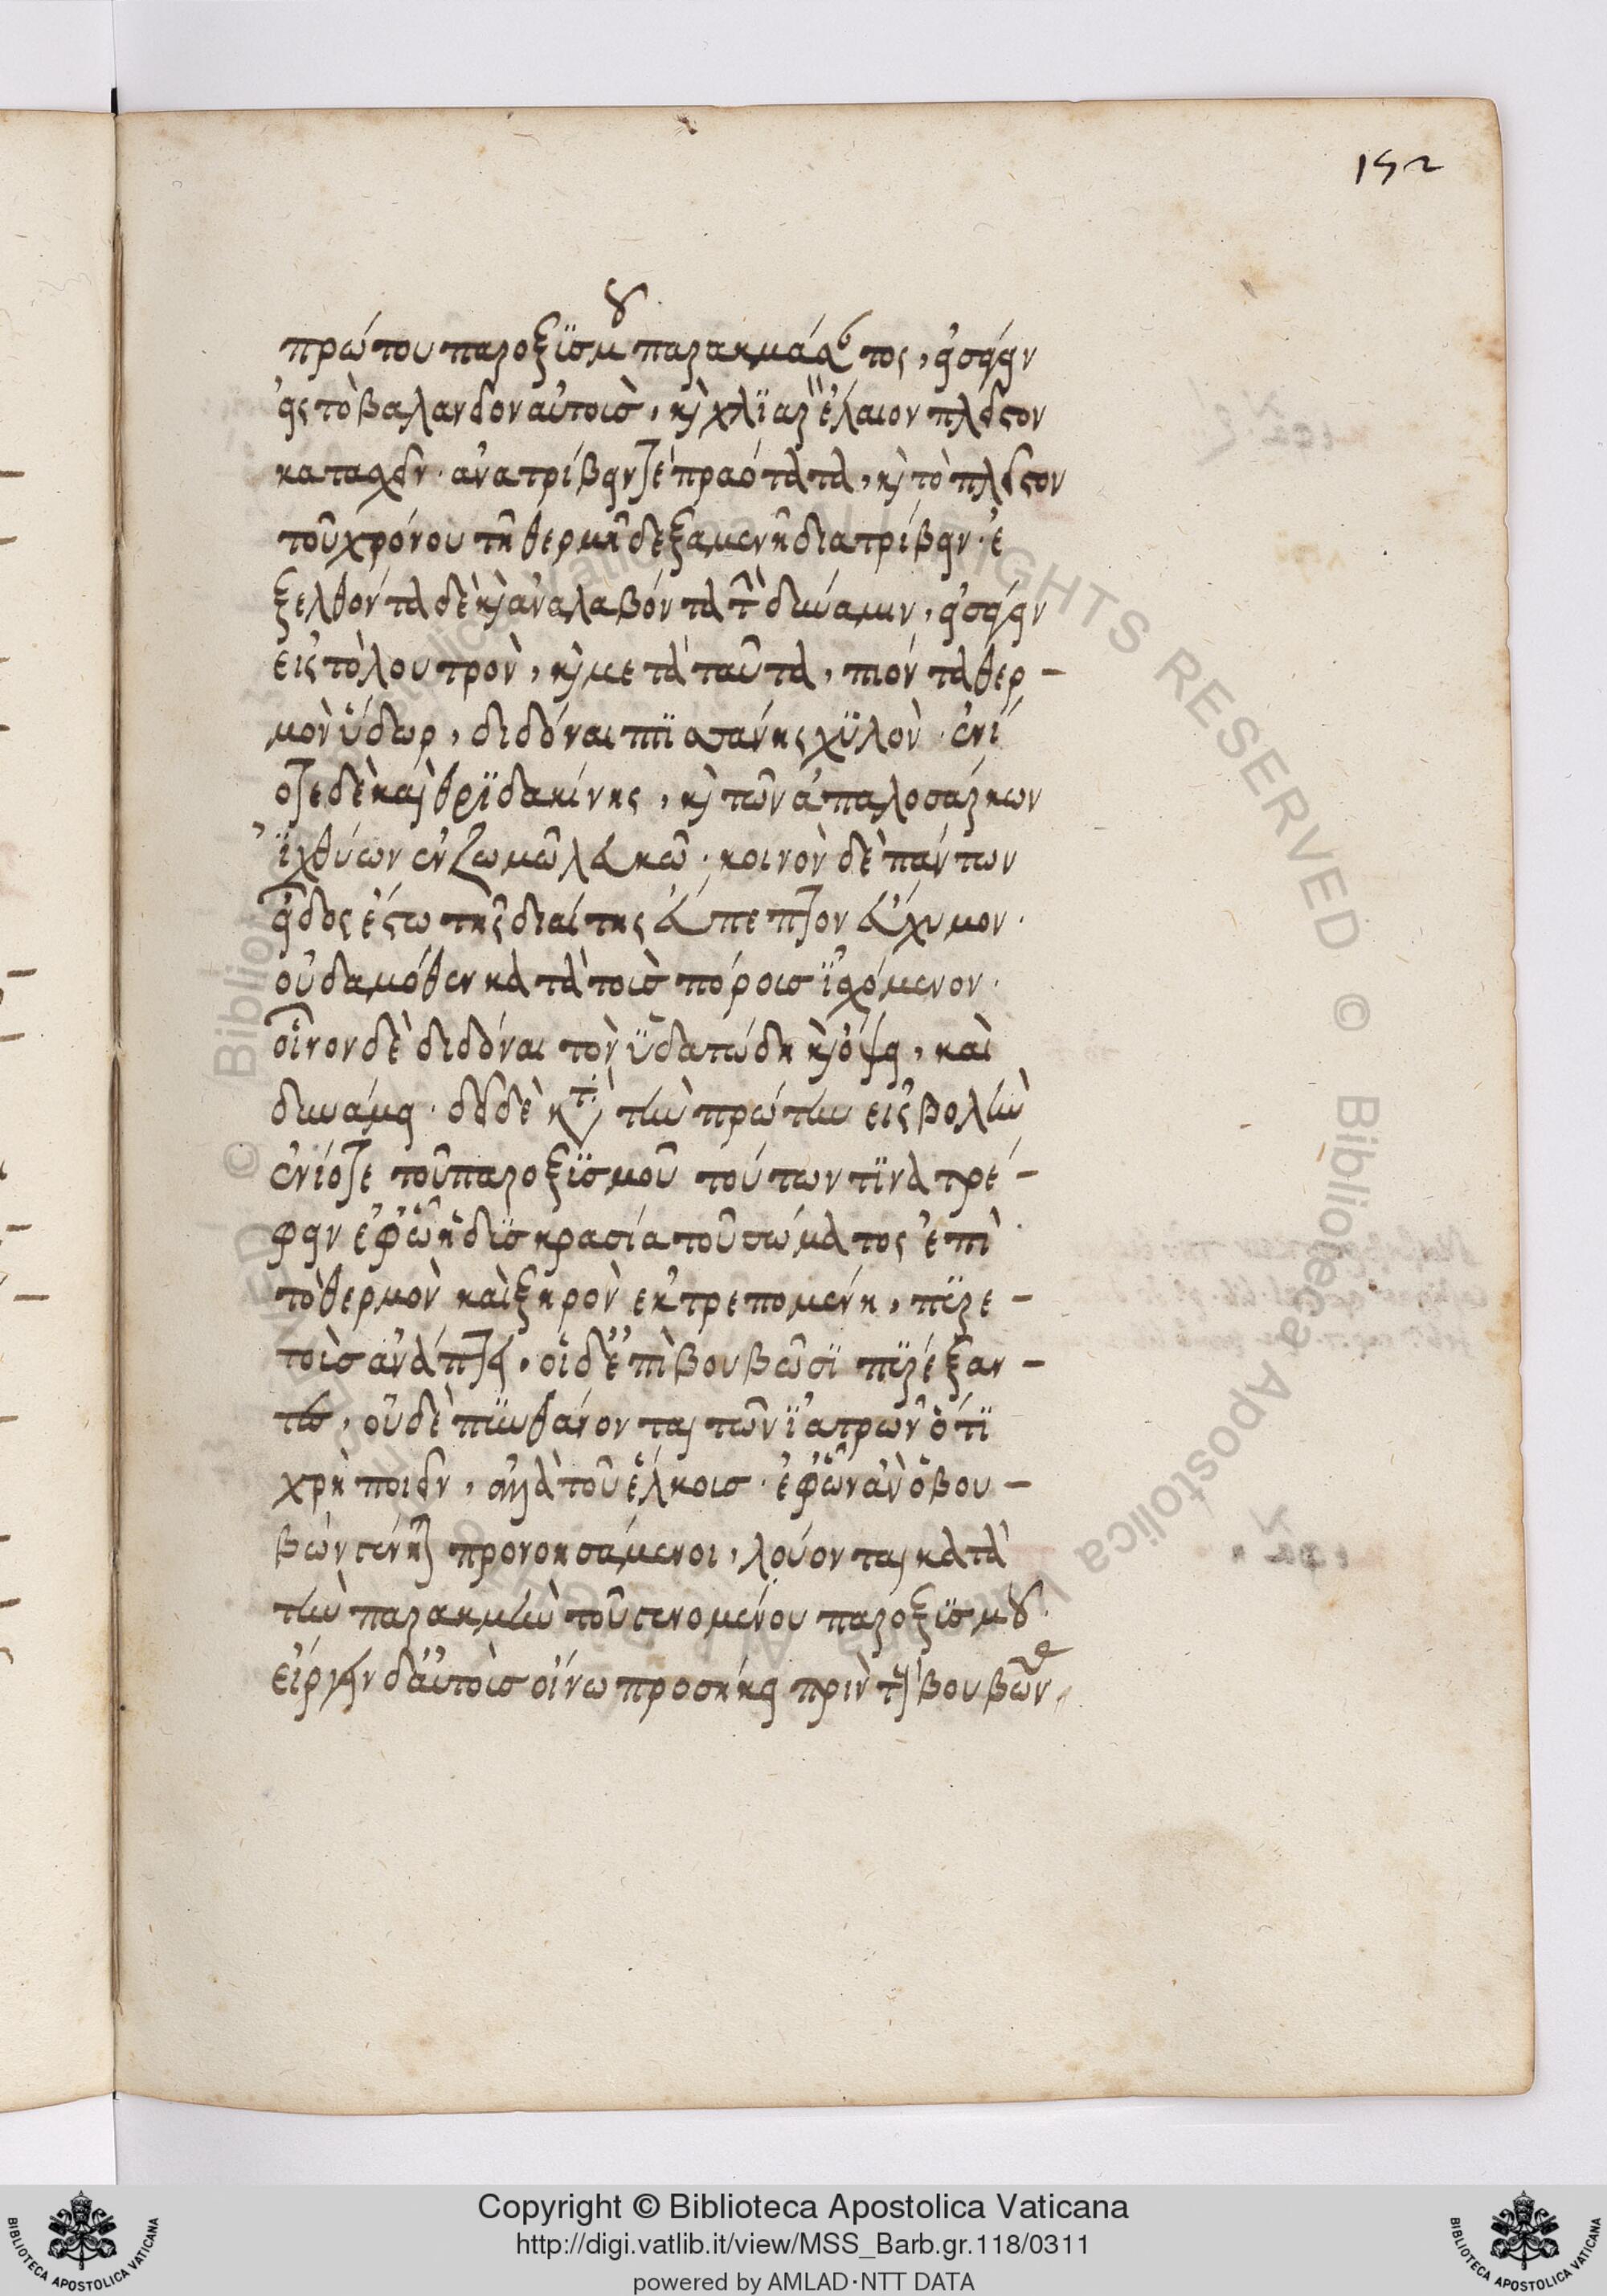 152
πρώτου παροξϋσμοῦ παρακμάσαντος, εἰσάγειν
εἰς τὸ βαλανεῖον αὐτοὺσ, καὶ χλϊαρὸν ἔλαιον πλεῖστον
καταχεῖν· ἀνατρίβειν τε πραότατα, καὶ τὸ πλεῖστον
τοῦ χρόνου τῆ θερμῆ δεξαμενῆ διατρίβειν· ἐ
ξελθόντα δὲ καὶ ἀναλαβόντα τὴν δύναμιν, εἰσάγειν
εἰς τὸ λουτρὸν, καὶ μετὰ ταῦτα, πιόντα θερ -
μὸν ὕδωρ, διδόναι πτϊσάνης χϋλὸν· ἐνί
οτε δὲ καὶ θρϊδακίνης, καὶ τῶν ἁπαλοσάρκων
ἰχθύων ἐν ζωμῶ λευκῶ· κοινὸν δὲ πάντων
εἶδος ἔστω τῆς διαίτης εὔπεπτον εὔχυμον·
οὐδαμόθεν κατὰ τοὺσ πόροισ ἰσχόμενον·
οἶνον δὲ διδόναι τὸν ὑδατώδη καὶ ὄψει, καὶ
δυνάμει· δεῖ δὲ κατὰ τὴν πρώτην εἰσβολὴν
ἐνίοτε τοῦ παροξϋσμοῦ τούτων τϊνὰ τρέ -
φειν ἐφ' ὧν ἡ δϋσκρασία τοῦ σώματος ἐπὶ
τὸ θερμὸν καὶ ξηρὸν ἐκτρεπομένη, πϋρε -
τοὺσ ἀνάπτει, οἱ δ' ἐπὶ βουβῶσϊ πϋρέξαν -
τες, οὐδὲ πϋνθάνονται τῶν ἰατρῶν ὅτϊ
χρὴ ποιεῖν, ἀλλὰ τοῦ ἕλκοισ· ἐφ' ὧν ἂν ὁ βου -
βὼν γένηται προνοησάμενοι, λούονται κατὰ
τὴν παρακμὴν τοῦ γενομένου παροξϋσμοῦ·
εἴργειν δ' αὐτοὺσ οἴνω προσήκει πρὶν βουβῶν
Copyright © Biblioteca Apostolica Vaticana
http://digi.vatlib.it/view/MSS_Barb.gr.118/0311
powered by AMLAD·NTT DATA
BIBLIOTECA APOSTOLICA VATICANA
BIBLIOTECA APOSTOLICA VATICANA